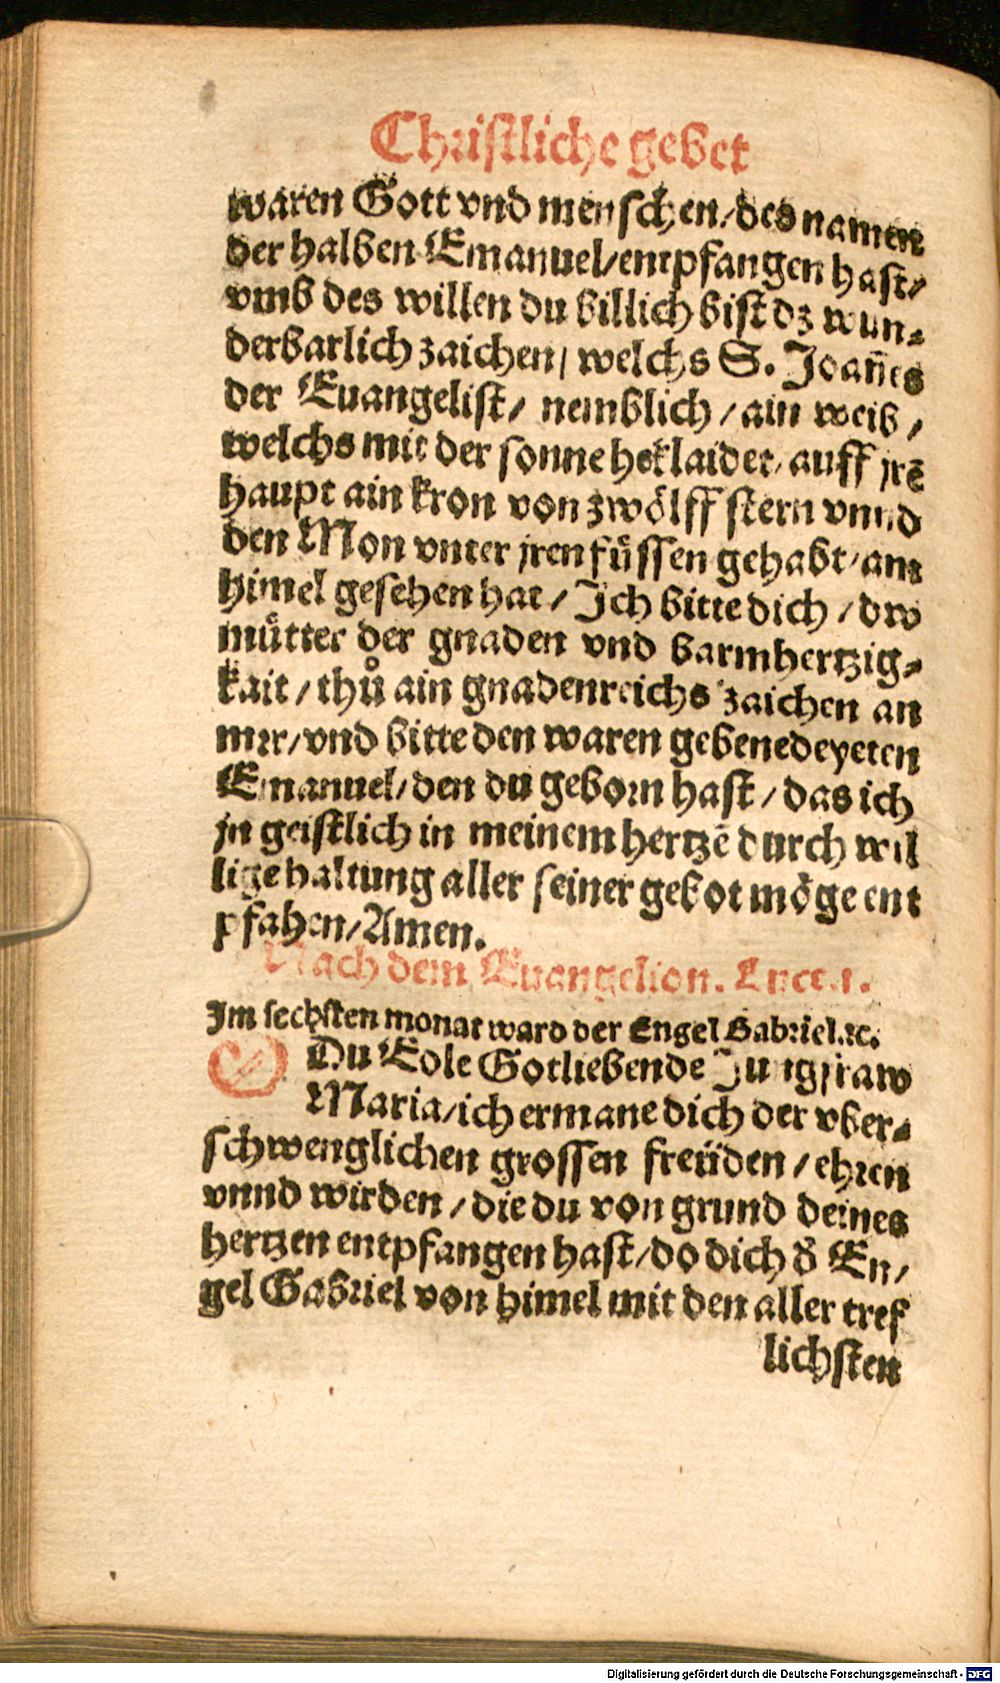 Christliche gebet
waren Gott vnd menschen / des namen
der halben Emanuel / entpfangen hast /
vmb des willen du billich bist dz wun⸗
derbarlich zaichen / welchs S. Joañes
der Euangelist / nemblich / ain weib /
welchs mit der sonne beklaidet / auff jrē
haupt ain kron von zwölff stern vnnd
den Mon vnter jren füssen gehabt / am
himel gesehen hat / Ich bitte dich / dw
mütter der gnaden vnd barmhertzig⸗
kait / thů ain gnadenreichs zaichen an
mir / vnd bitte den waren gebenedeyeten
Emanuel / den du geborn hast / das ich
jn geistlich in meinem hertzē durch wil
lige haltung aller seiner gebot möge ent
pfahen / Amen.
Nach dem Euangelion. Luce. 1.
Im sechsten monat ward der Engel Gabriel. ꝛc.
O Du Edle Gotliebende Jungfraw
Maria / ich ermane dich der vber⸗
schwenglichen grossen freüden / ehren
vnnd wirden / die du von grund deines
hertzen entpfangen hast / do dich d̕ En /
gel Gabriel von himel mit den aller tref
lichsten
Digitalisierung gefördert durch die Deutsche Forschungsgemeinschaft - DFG